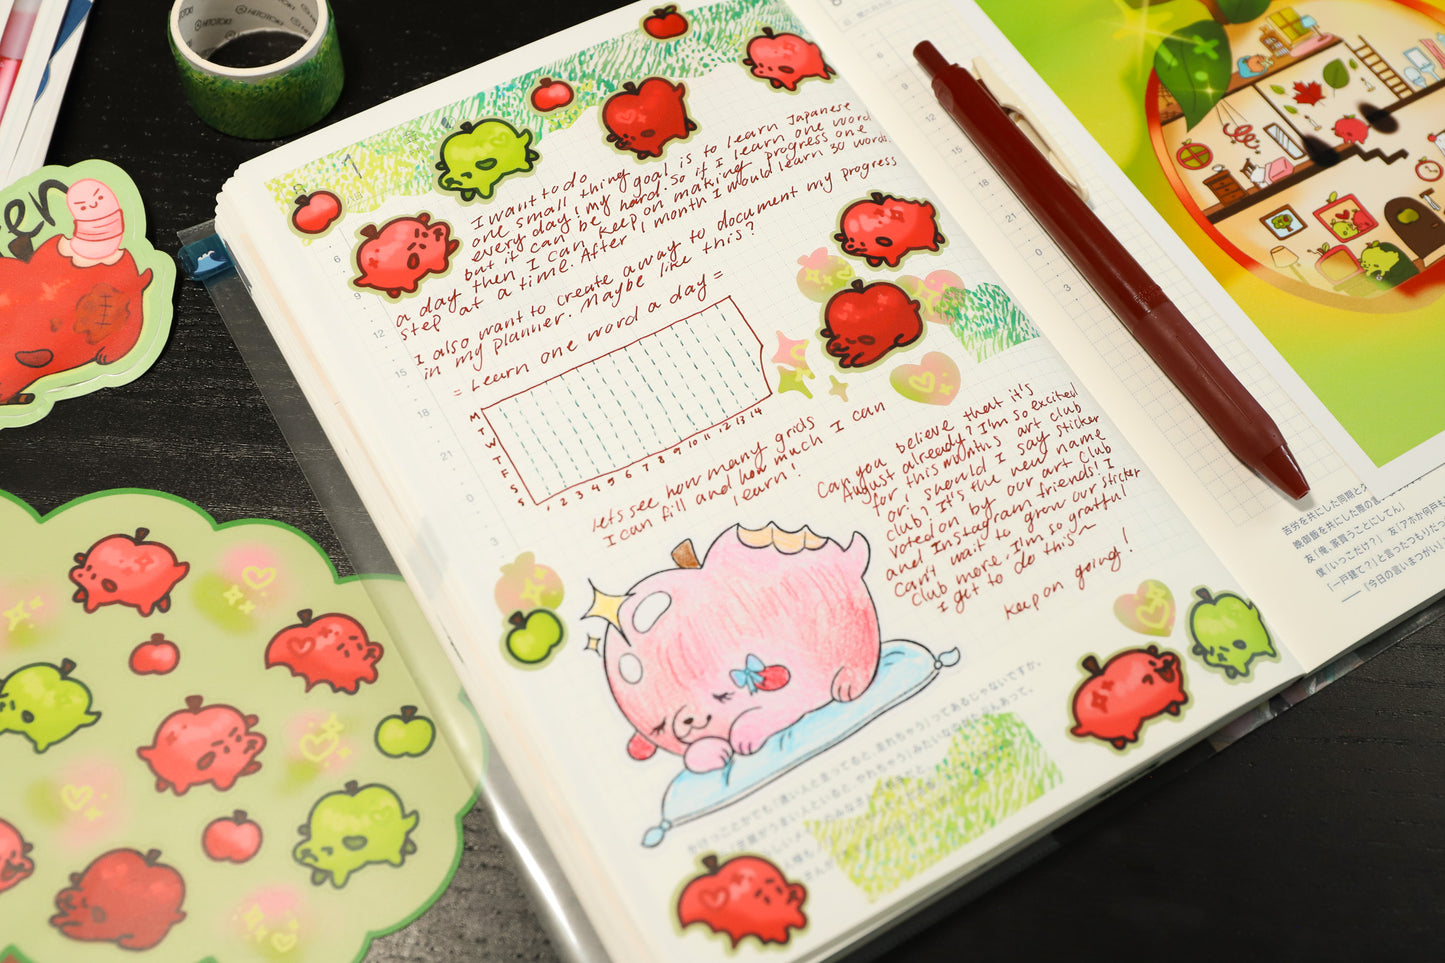 HITOTOKI
HITOTOKI
en
1
I want to do
one small thing
every day, my goal is to learn Japanese
but it can be hard. So if I learn one word
a day then I can keep on making progress one
step at a time. After 1 month I would learn 30 words.
I also want to create a way to document my progress
in my planner. Maybe like this?
= Learn one word a day =
M
T
W
T
F
S
S
1 2 3 4 5 6 7 8 9 10 11 12 13 14
Lets see how many grids
I can fill and how much I can
learn!
Can you believe that it's
August already? I'm so excited
for this month's art club
or, should I say sticker
club? It's the new name
voted on by our art club
and Instagram friends! I
can't wait to grow our sticker
club more. I'm so gratful
I get to do this~
keep on going!
6
9
12
15
18
21
0
3
6
9
12
15
18
21
0
3
苦労を共にした同期と
晩御飯を共にした際の
友「俺、家買うことにしてん」
僕「いつこだけ?」 友「アホか何戸も
「一戸建て?」と言ったつもりだっ
「今日の言いまつがい」